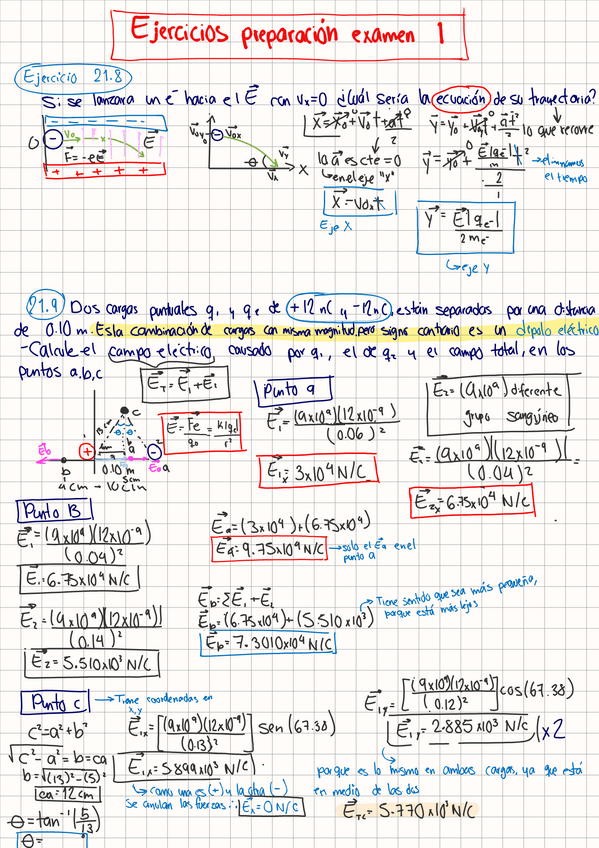 Ejercicios preparación examen 1
Ejercicio 21.8
Si se lanzara un e⁻ hacia el E⃗ con vx=0 ¿Cuál sería la ecuación de su trayectoria?
O ⊖ V⃗o E⃗
F⃗=-eE⃗
+ + + + +
V⃗oy V⃗ox
V⃗y
θ V⃗x X
X⃗=X⃗o+V⃗ot+at²/2
la a⃗ es cte=0
↳ en el eje "x"
X⃗=Voxt
Eje X
Y⃗=Y⃗o+V⃗ot+at²/2 lo que recorre
→eliminamos el tiempo
Y⃗=E⃗|qe-|/2me-
↳eje Y
21.9 Dos cargas puntuales q₁ y q₂ de +12nC y -12nC, están separadas por una distancia
de 0.10 m. Esta combinación de cargas con misma magnitud, pero signo contrario es un dipolo eléctrico
-Calcule el campo eléctrico causado por q₁, el de q₂ y el campo total, en los
puntos a,b,c
E⃗T=E⃗1+E⃗2
E⃗=Fe/q0=k|q|/r²
c
13cm
E⃗b
b
a
0.10 m
4cm - 10cm
5cm
Punto a
E⃗1=(9x10⁹)(12x10⁻⁹)/(0.06)²
E⃗1x=3x10⁴ N/C
E⃗2=(9x10⁹) diferente
grupo sanguíneo
E⃗2=(9x10⁹)(12x10⁻⁹)/(0.04)²=
E⃗2x=6.75x10⁴ N/C
E⃗a=(3x10⁴)+(6.75x10⁴)
E⃗a=9.75x10⁴ N/C →solo el E⃗a en el
punto a
Punto B
E⃗1=(9x10⁹)(12x10⁻⁹)/(0.04)²
E⃗1=6.75x10⁴ N/C
E⃗2=(9x10⁹)(12x10⁻⁹)/(0.14)²
E⃗2=5.510x10³ N/C
E⃗b=ΣE⃗1+E⃗2
E⃗b=(6.75x10⁴)+(5.510x10³)
E⃗b=7.3010x10⁴ N/C
→Tiene sentido que sea más pequeño,
porque está más lejos
Punto c →Tiene coordenadas en
x,y
c²=a²+b²
√c²-a²=b=ca
b=√(13)²-(5)²
ca=12cm
θ=tan⁻¹(5/13)
θ=
E⃗1x=[(9x10⁹)(12x10⁻⁹)/(0.13)²] sen (67.38)
E⃗1x=5.899x10³ N/C
↳como una es (+) y la otra (-)
se anulan las fuerzas ∴ E⃗x=0 N/C
E⃗1y=[(9x10⁹)(12x10⁻⁹)/(0.12)²] cos(67.38)
E⃗1y=2.885x10³ N/C (x2
porque es lo mismo en ambas cargas, ya que está
en medio de las dos
E⃗Tc=5.770x10³ N/C